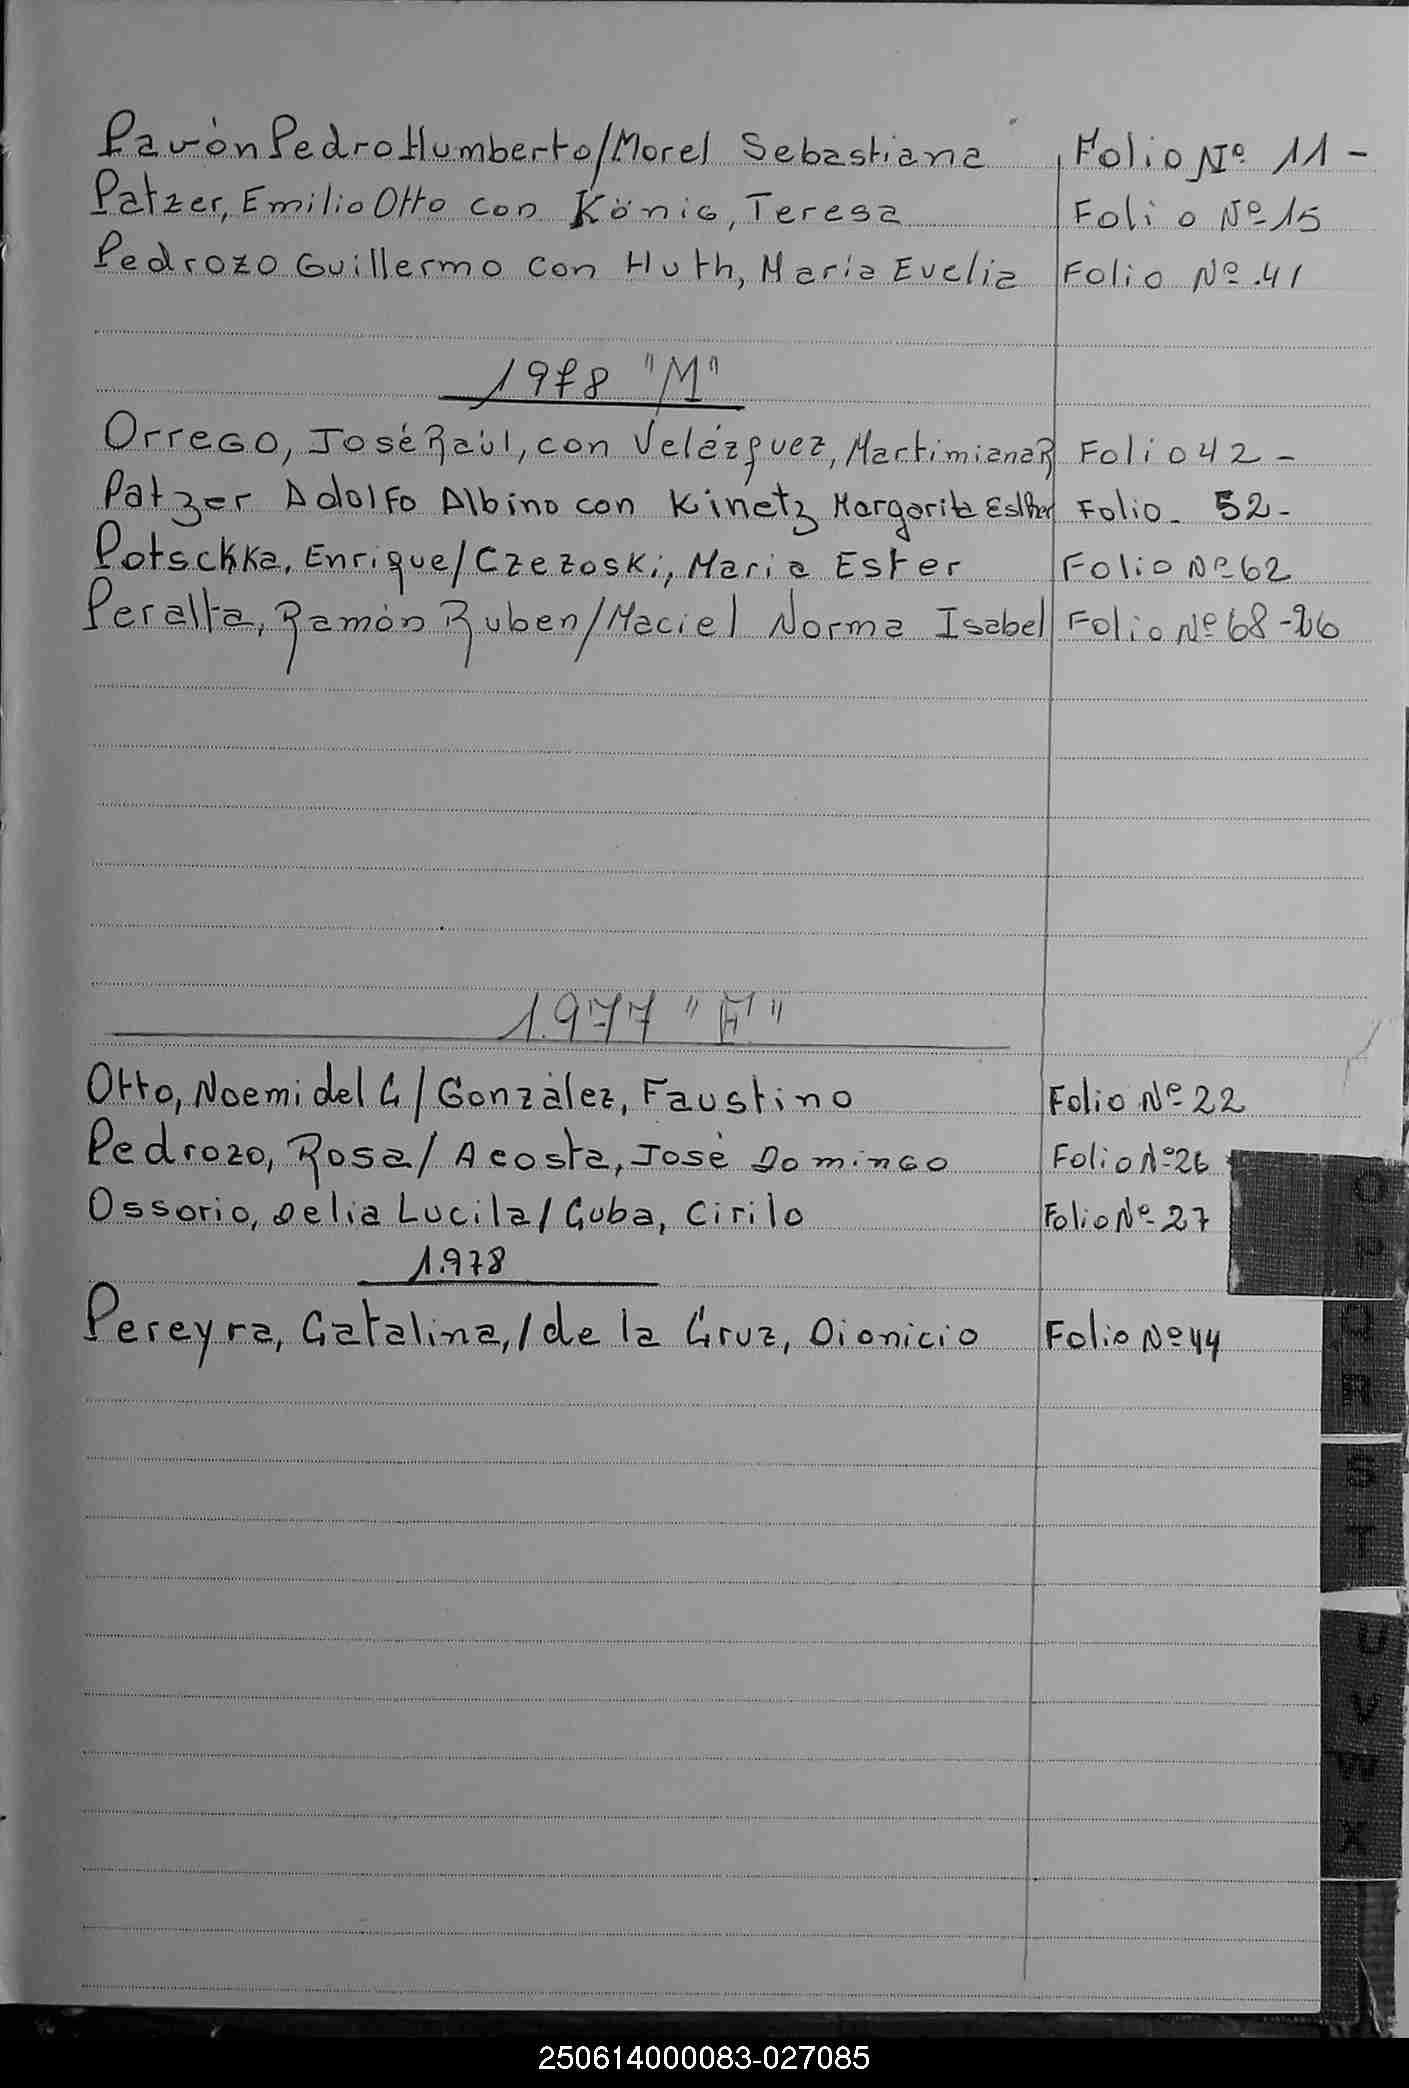 Pavón Pedro Humberto/Morel Sebastiana Folio Nº 11-
Patzer, Emilio Otto con König, Teresa Folio Nº 15
Pedrozo Guillermo con Huth, Maria Evelia Folio Nº 41
1978 "M"
Orrego, José Raúl, con Velázquez, Martimiana R Folio 42-
Patzer Adolfo Albino con Kinetz Margarita Esther Folio- 52-
Potschka, Enrique/Czezoski, Maria Ester Folio Nº 62
Peralta, Ramón Ruben/Maciel Norma Isabel Folio Nº 68-
1.977 "F"
Otto, Noemi del C/González, Faustino Folio Nº 22
Pedrozo, Rosa/Acosta, José Domingo Folio Nº 26
Ossorio, Delia Lucila/Cuba, Cirilo Folio Nº 27
1.978
Pereyra, Catalina,/de la Cruz, Dionicio Folio Nº 44
O
P
Q
R
S
T
U
V
W
X
250614000083-027085